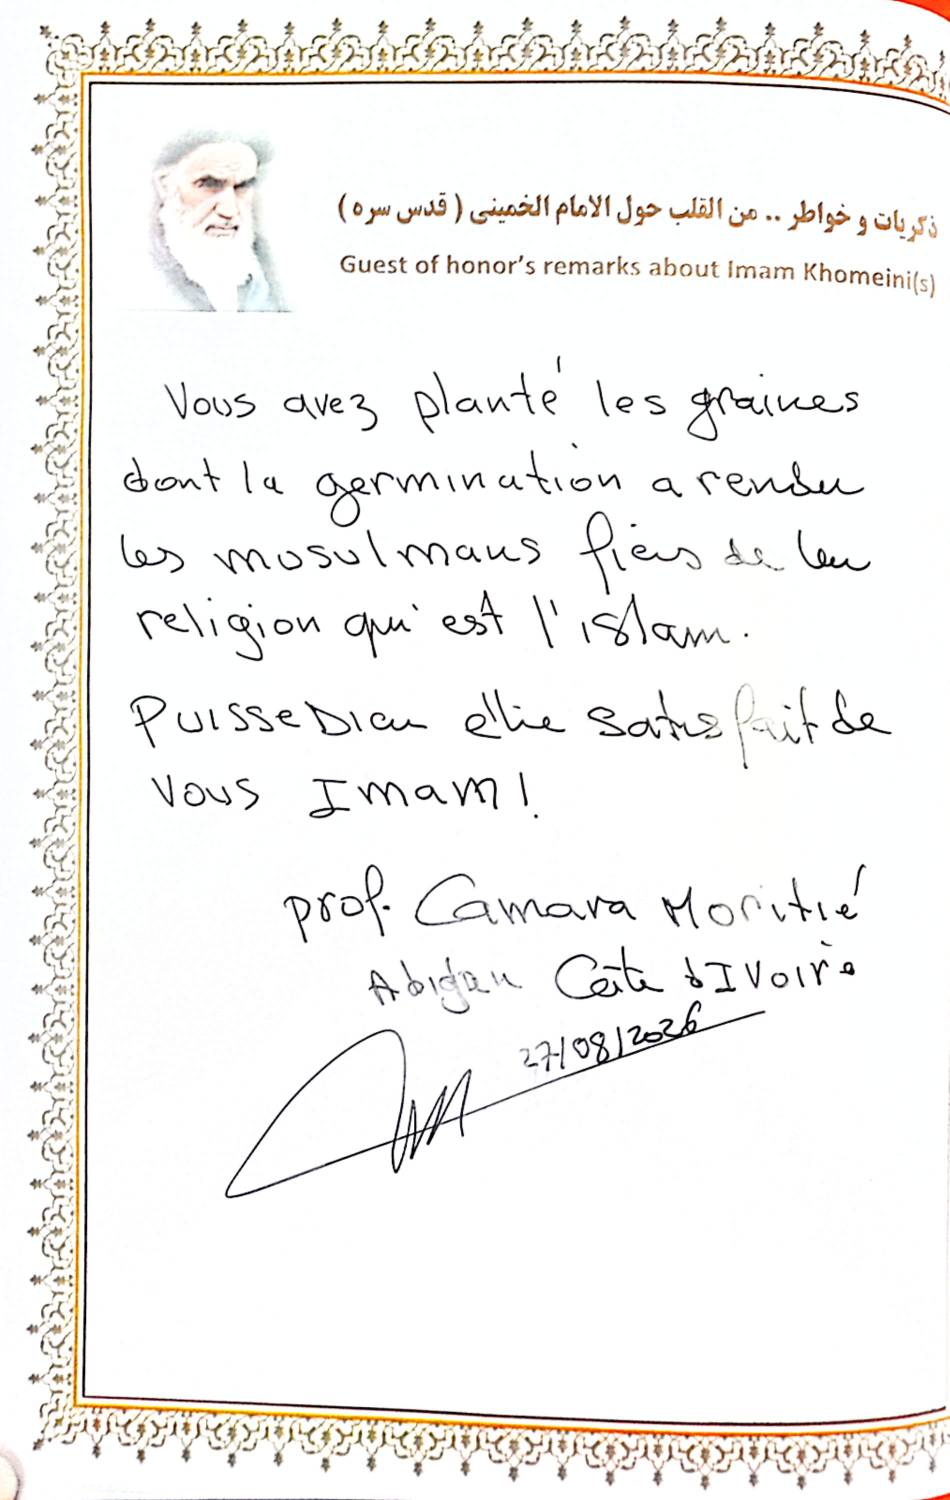 ذكريات و خواطر .. من القلب حول الامام الخمينى ( قدس سره )
Guest of honor's remarks about Imam Khomeini(s)
Vous avez planté les graines
dont la germination a rendu
les musulmans fiers de leur
religion qui est l'islam.
Puisse Dieu être satisfait de
vous Imam !
prof. Camara Moritié
Abidjan Côte d'Ivoire
27/08/2026